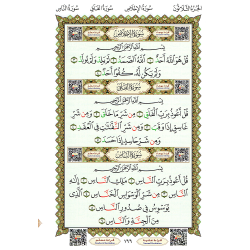 سورة الناس سورة الفلق سورة الإخلاص الجزء الثلاثون
سورة الإخلاص
بسم الله الرحمن الرحيم
قل هو الله أحد الله الصمد لم يلد ولم يولد
ولم يكن له كفوا أحد
سورة الفلق
بسم الله الرحمن الرحيم
قل أعوذ برب الفلق من شر ما خلق ومن شر
غاسق إذا وقب ومن شر النفاثات في العقد
ومن شر حاسد إذا حسد
سورة الناس
بسم الله الرحمن الرحيم
قل أعوذ برب الناس ملك الناس إله
الناس من شر الوسواس الخناس الذي
يوسوس في صدور الناس
من الجنة والناس